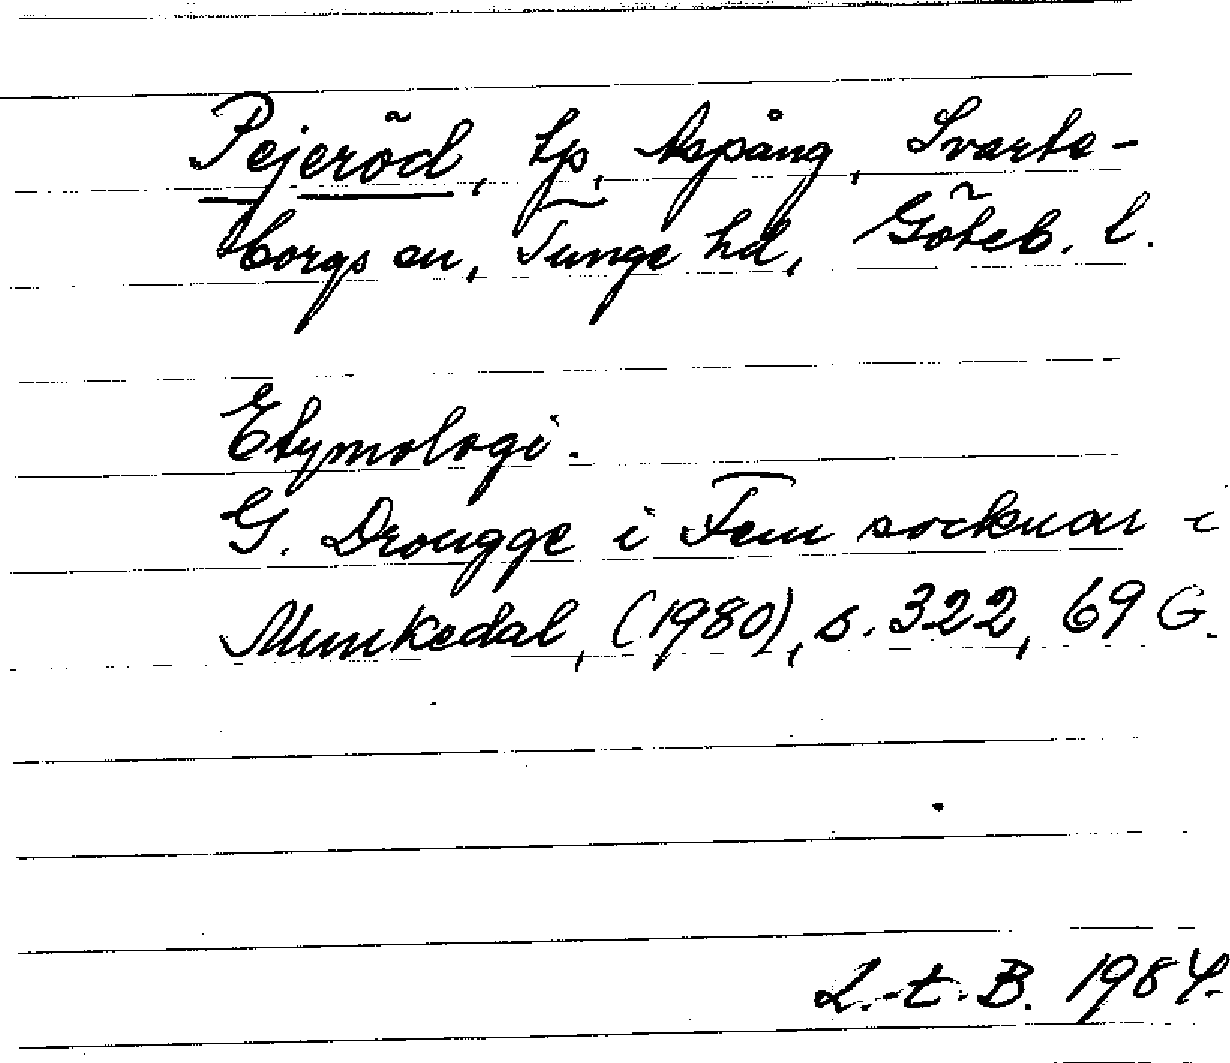 Pejeröd, tp, Aspång, Svarte-
borgs sn, Tunge hd, Göteb. l.
Etymologi.
G. Drougge i Fem socknar i
Munkedal, (1980), s. 322, 69 G.
L.-t. B. 1984.